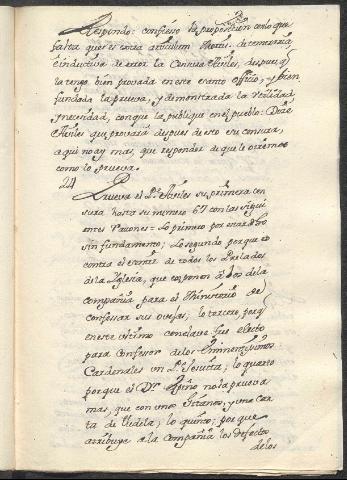 Respondo: confieso la proposicion con lo que
falta que es contra articulum Mortis. detemeraria,
è inductiva de error la Censura Aviles, despues q
la tengo bien provada en este santo officio, y bien
fundada la prueva, y demonstrada la utilidad
y necesidad, conque la publique en el pueblo: Dize
Aviles que provarà despues de esto su censura,
aqui no ay mas, que responder de que lo oiremos
como lo prueva.
24
Prueva el P.e Aviles su primera cen
sura hasta su numero 67 con las sigui
entes razones = Lo primero por estar dicho
sin fundamento; lo segundo porque es
contra el sentir de todos los Prelados
de la Iglesia, que exponen à los de la
compañia para el Ministerio de
confessar sus ovejas; lo tercero, porq
en este ultimo conclave fue electo
para Confesor de los Eminentissimos
Cardenales un P.e Jesuita; lo quarto
porque el D.r Espino no la prueva
mas, que con unos Gitanos, y una car
ta de Videla; lo quinto; porque
atribuye a la Compañia los defectos
de los